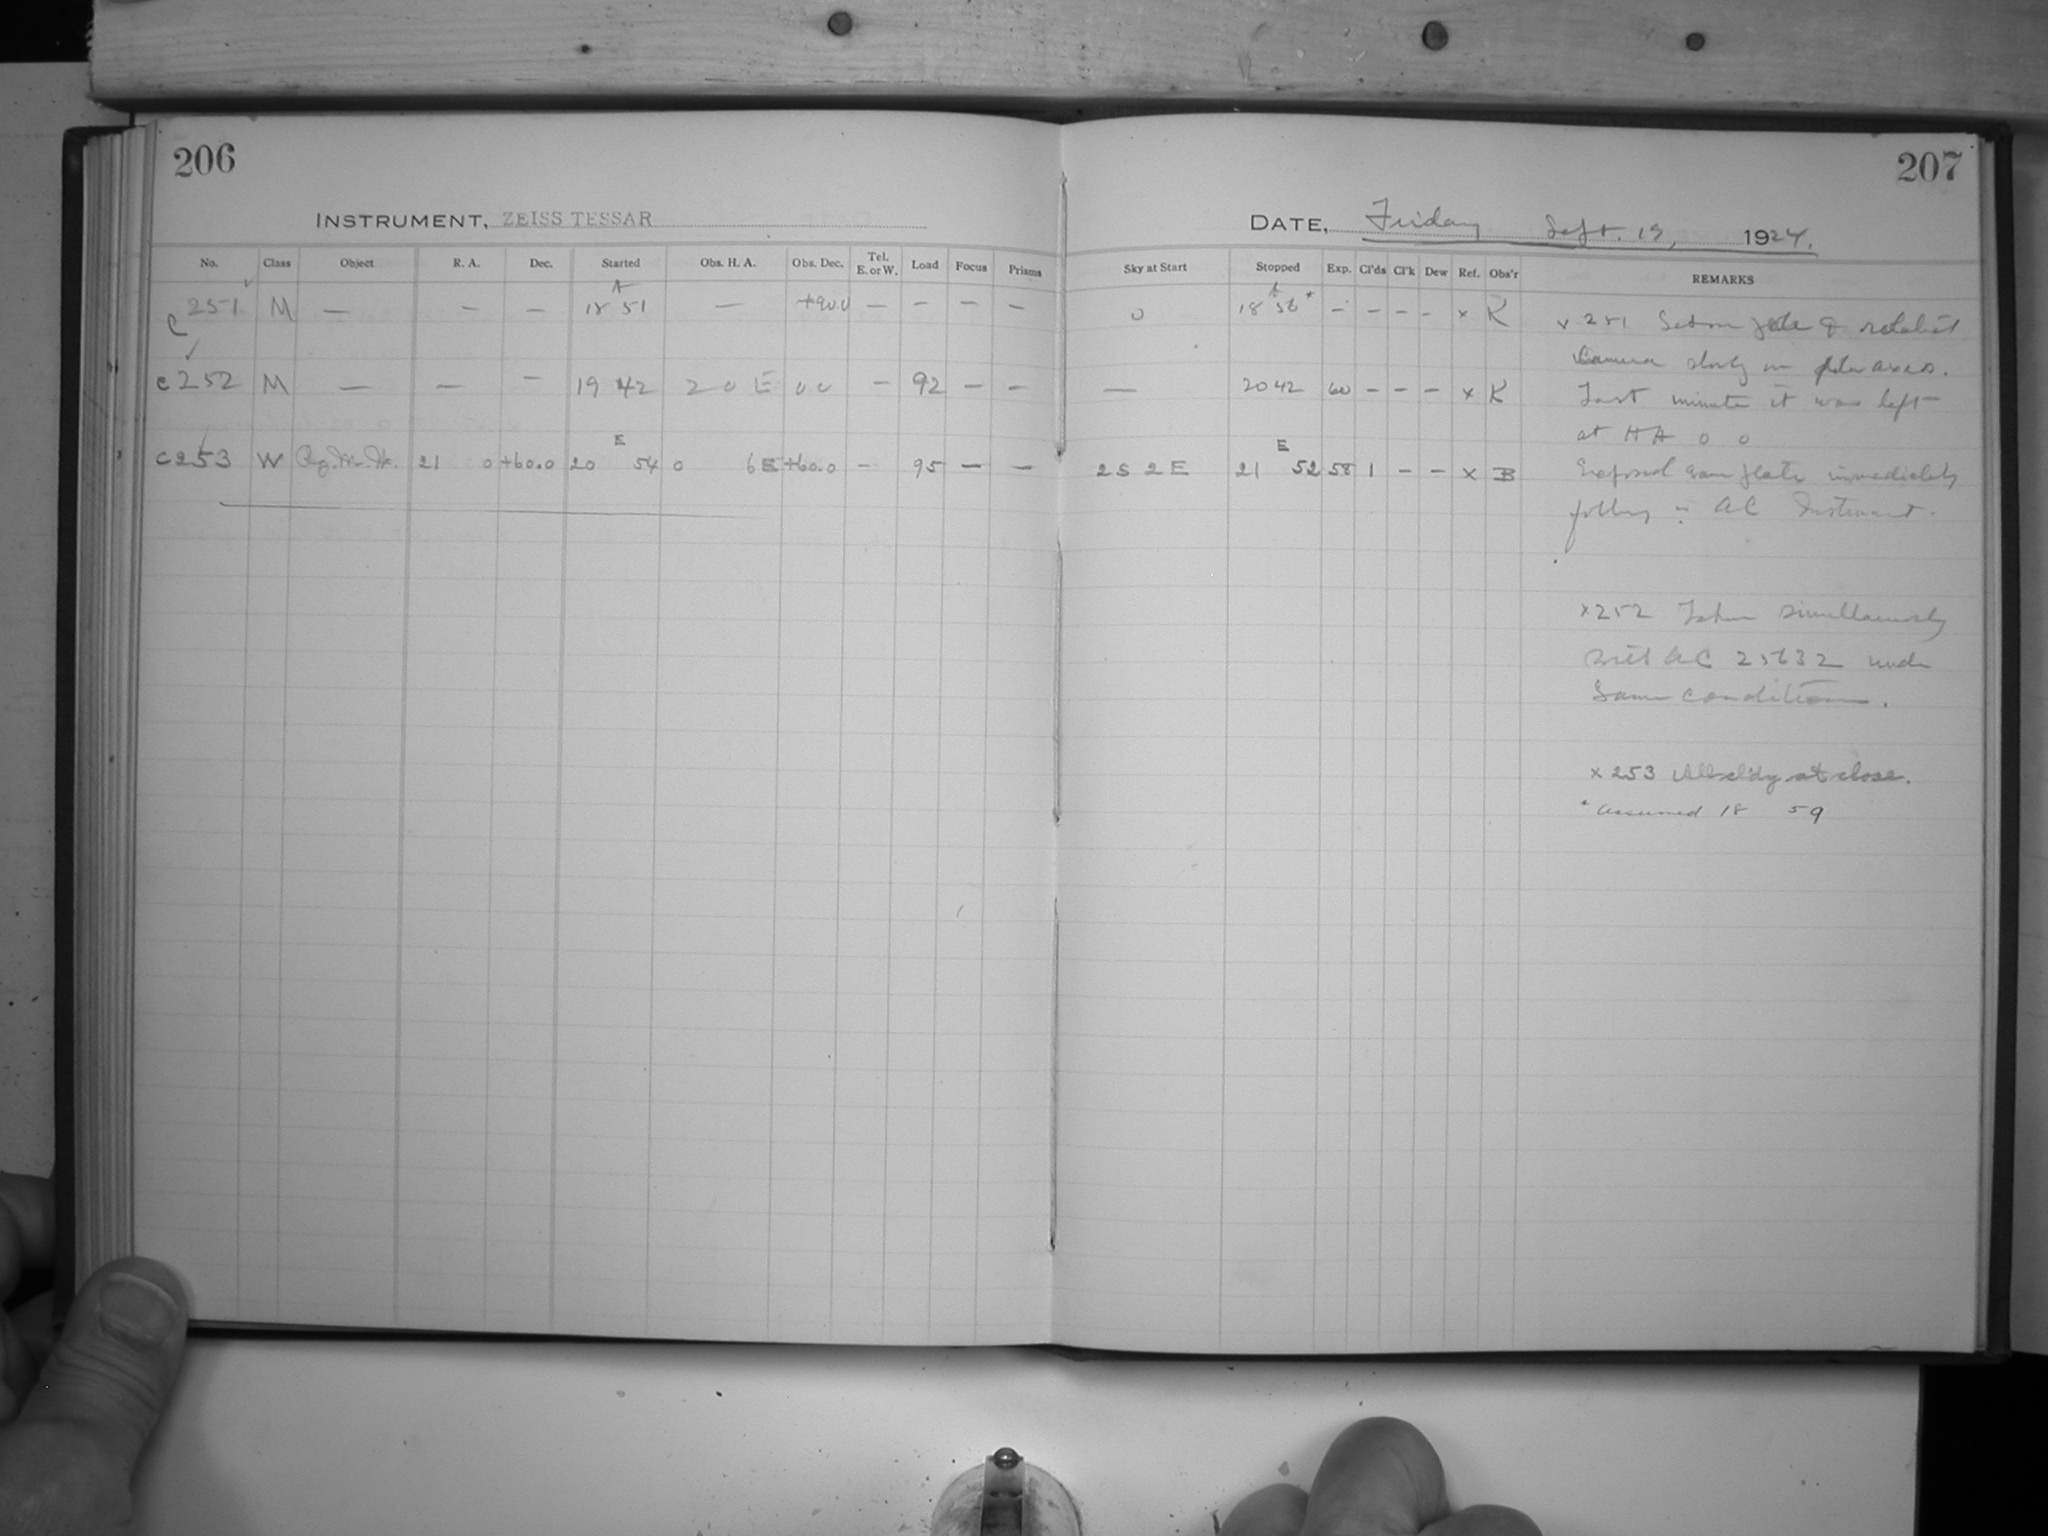 206
207
INSTRUMENT, ZEISS TESSAR
DATE, Friday Sept. 19, 1924.
No. Class Object R. A. Dec. Started Obs. H. A. Obs. Dec. Tel. E. or W. Load Focus Prisms Sky at Start Stopped Exp. Cl'ds Cl'k Dew Ref. Obs'r REMARKS
C 251 M — — — A 18 51 — +90.0 — — — — 0 A 18 56 * — — — — x K
x 251 Set on pole & rotated
camera slowly on polar axis.
c 252 M — — — 19 42 2 0 E 0 0 — 92 — — — 20 42 60 — — — x K
Last minute it was left
at HA 0 0
C 253 W 21 0 +60.0 E 20 54 0 6 E +60.0 — 95 — — 2 S 2 E E 21 52 58 1 — — x B
Exposed same plate immediately
following in AC Instrument.
x 252 Taken simultaneously
with AC 25632 under
same conditions.
x 253 All cl'dy at close.
* Assumed 18 59